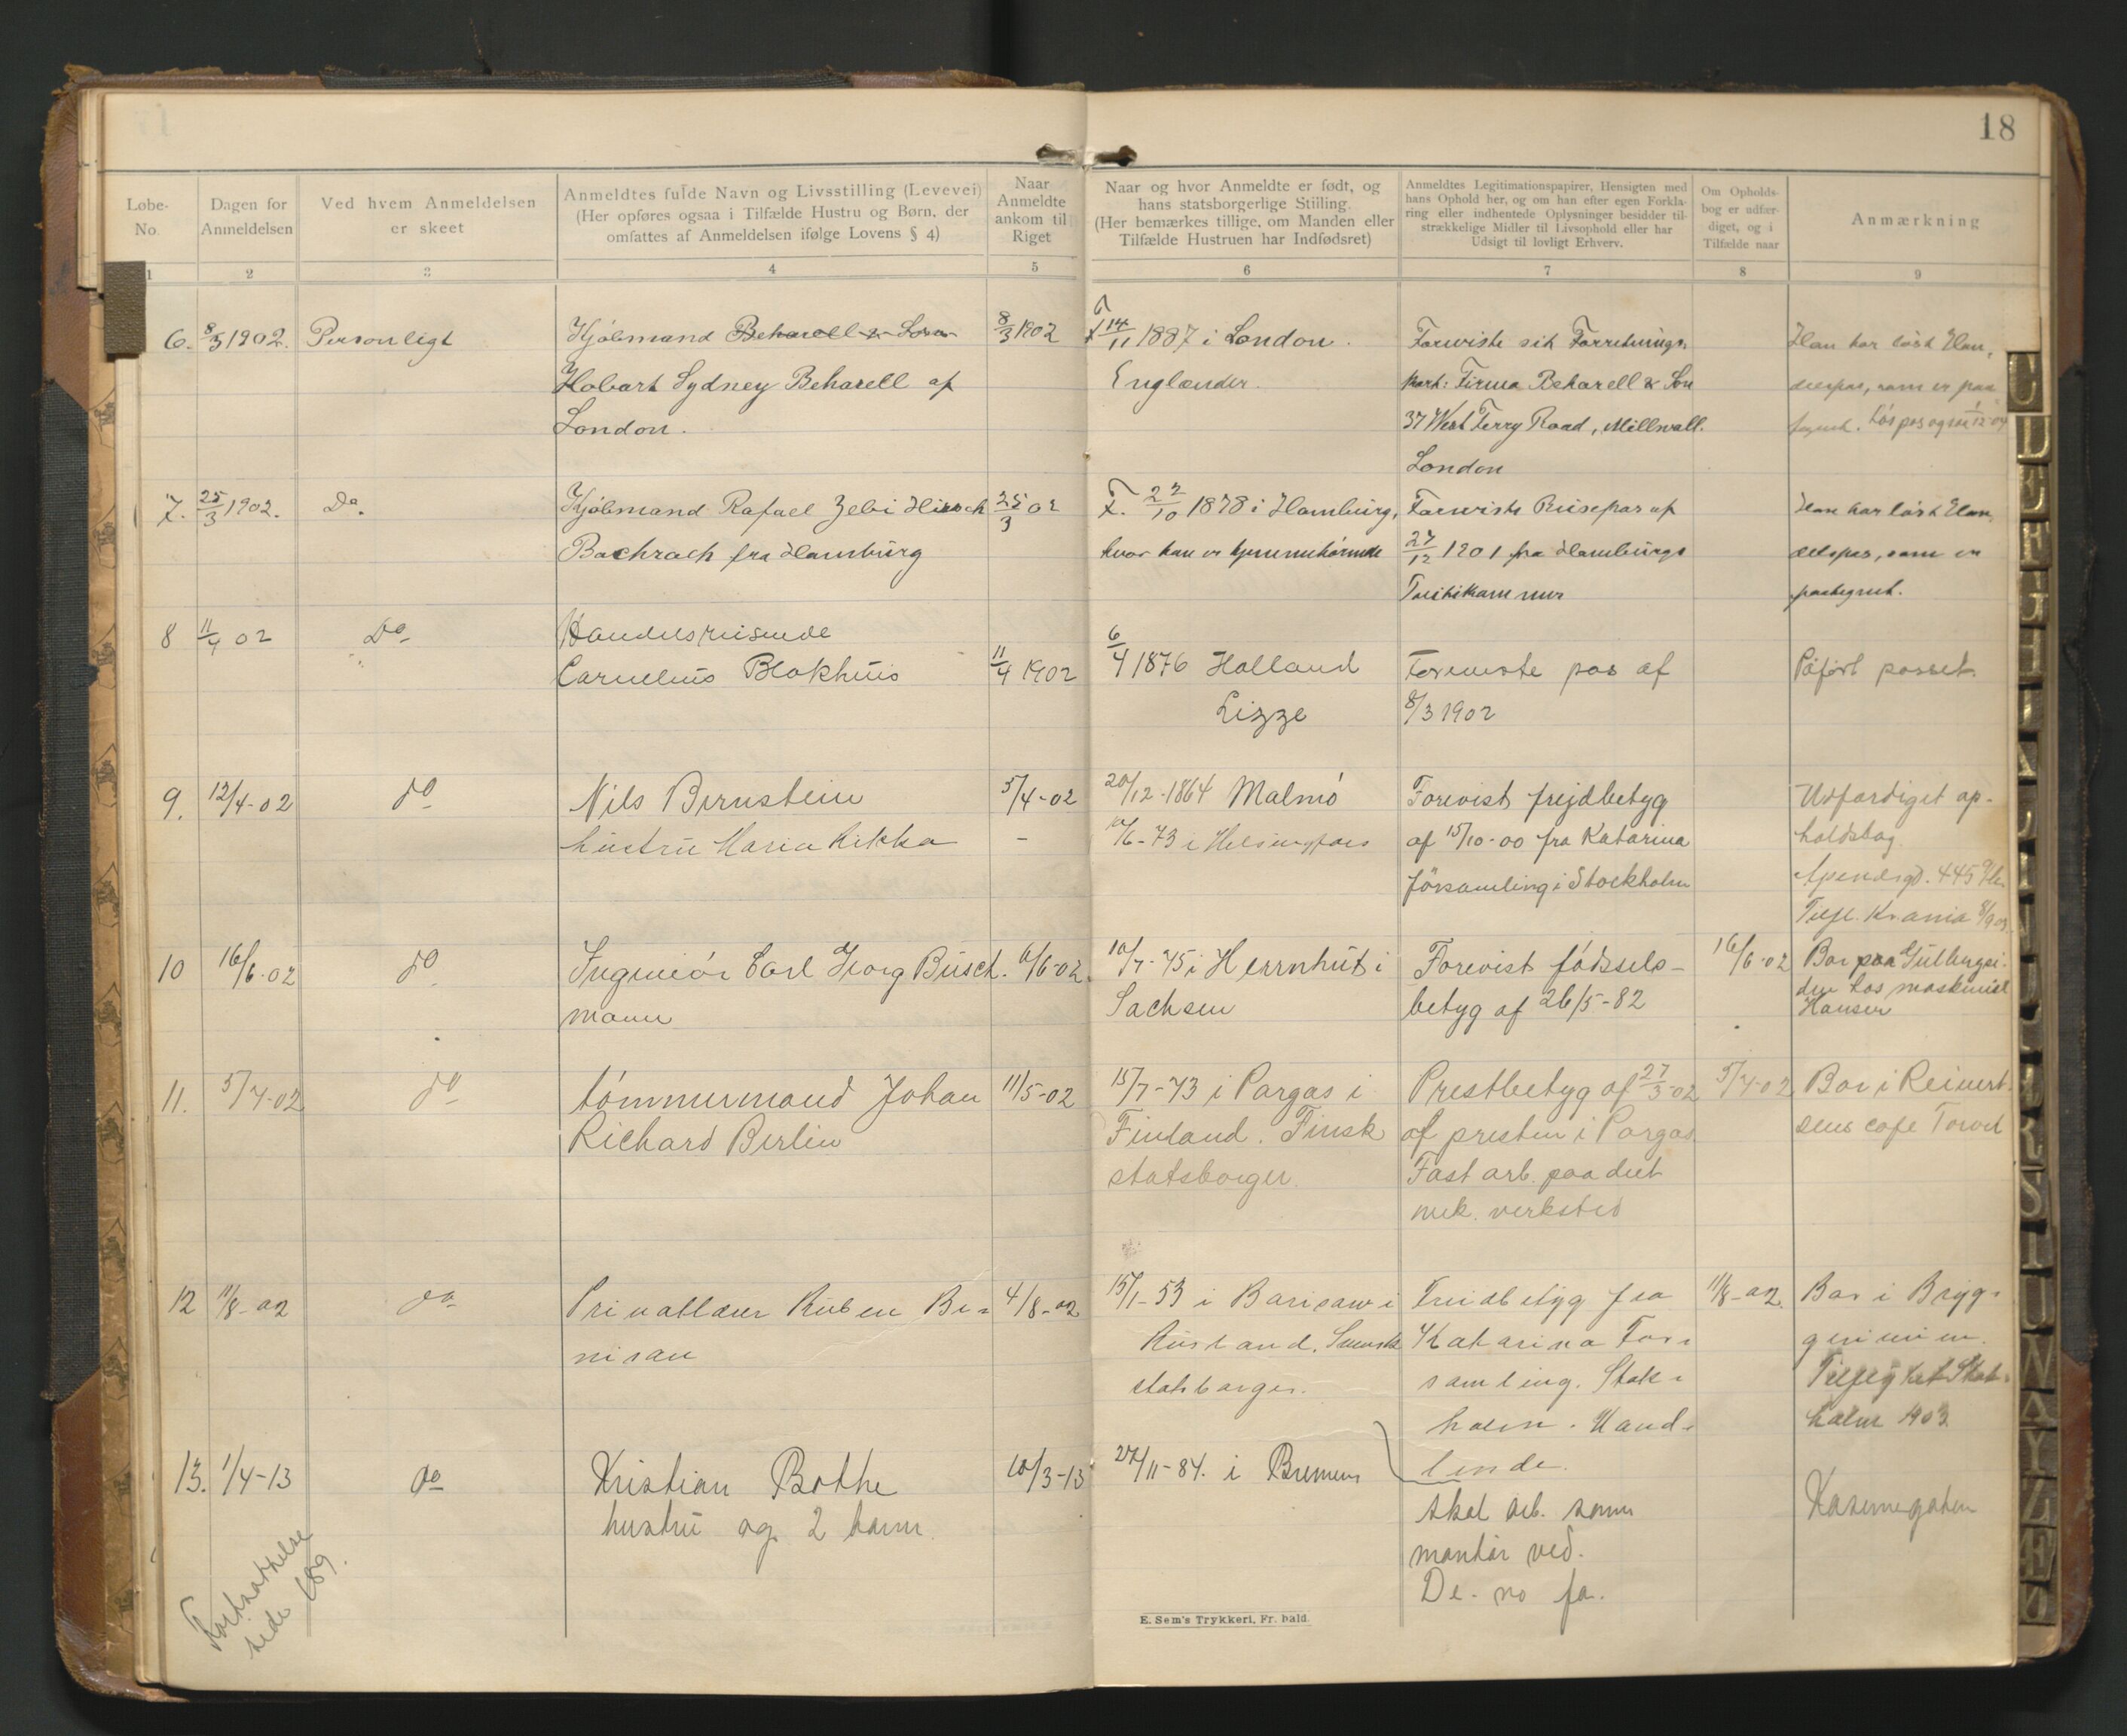 18
Løbe-
No.
Dagen for
Anmeldelsen
Ved hvem Anmeldelsen
er skeet
Anmeldtes fulde Navn og Livsstilling (Levevei)
(Her opføres ogsaa i Tilfælde Hustru og Børn, der
omfattes af Anmeldelsen ifølge Lovens § 4)
Naar
Anmeldte
ankom til
Riget
Naar og hvor Anmeldte er født, og
hans statsborgerlige Stiiling.
(Her bemærkes tillige, om Manden eller
Tilfælde Hustruen har Indfødsret)
Anmeldtes Legitimationspapirer, Hensigten med
hans Ophold her, og om han efter egen Forkla-
ring eller indhentede Oplysninger besidder til-
strækkelige Midler til Livsophold eller har
Udsigt til lovligt Erhverv.
Om Opholds-
bog er udfær-
diget, og i
Tilfælde naar
Anmærkning
1 2 3 4 5 6 7 8 9
6. 8/3 1902. Personligt
Kjøbmand Beharell & Son
Hobart Sydney Beharell af
London.
8/3 1902
f 14/11 1887 i London.
Englænder.
Foreviste sit Forretnings-
kort: Firma Beharell & Son
37 West Ferry Road, Millwall.
London
Han har løst Han-
delspas, som er paa-
tegnet. Løs pas ogsaa 1/12-04
7. 25/3 1902. Do.
Kjøbmand Rafael Zebi Hirsch
Bachrach fra Hamburg
25/3 02
F. 22/10 1878 i Hamburg,
hvor han er hjemmehørende
Foreviste Reisepas af
27/12 1901 fra Hamburgs
Politikammer
Han har løst Han-
delspas, som er
paategnet.
8 11/4 02 Do
Handelsreisende
Cornelius Blokhuis
11/4 1902
6/4 1876 Holland
Lizze
Foreviste pas af
8/3 1902
Påført passet
9. 12/4-02 do
Nils Bernstein
hustru Maria Rikka
5/4-02
-
20/12-1864 Malmö
/6-73 i Helsingfors
Forevist frejdbetyg
af 15/10-00 fra Katarina
församling i Stockholm
Udfærdiget op-
holdsbog.
Tilfl. Krania 8/9 02
10 16/6-02 do
Ingeniör Carl Georg Busch-
mann
6/6-02
10/7-75 i Herrnhut i
Sachsen
Forevist fødsels-
betyg af 26/5-82
16/6-02
Bor paa Gultbergsi-
den hos maskinist
Hansen
11. 5/7-02 do
tömmermand Johan
Richard Berlin
11/5-02
15/7-73 i Pargas i
Finland. Finsk
statsborger.
Prestbetyg af 27/3-02
af presten i Pargas.
Fast arb. paa det
mek. verksted
5/7-02
Bor i Reinert-
sens cafe Torvet
12 11/8-02 do
Privatlærer Ruben Be-
nison
4/8-02
15/1-53 i Barisaw i
Rusland. Svensk
statsborger.
Freidbetyg fra
Katarina For-
samling. Stok-
holm. Hand-
lende.
11/8-02.
Bor i Bryg-
gerieien.
Tilflyttet Stok-
holm 1903
13. 1/4-13 do
Kristian Bothe
hustru og 2 barn.
10/3-13
27/11-84. i Bremen
skal arb. som
montør ved.
De-no fa.
Kasernegaten
Fortsættelse
side 189.
E. Sem's Trykkeri, Fr. hald.